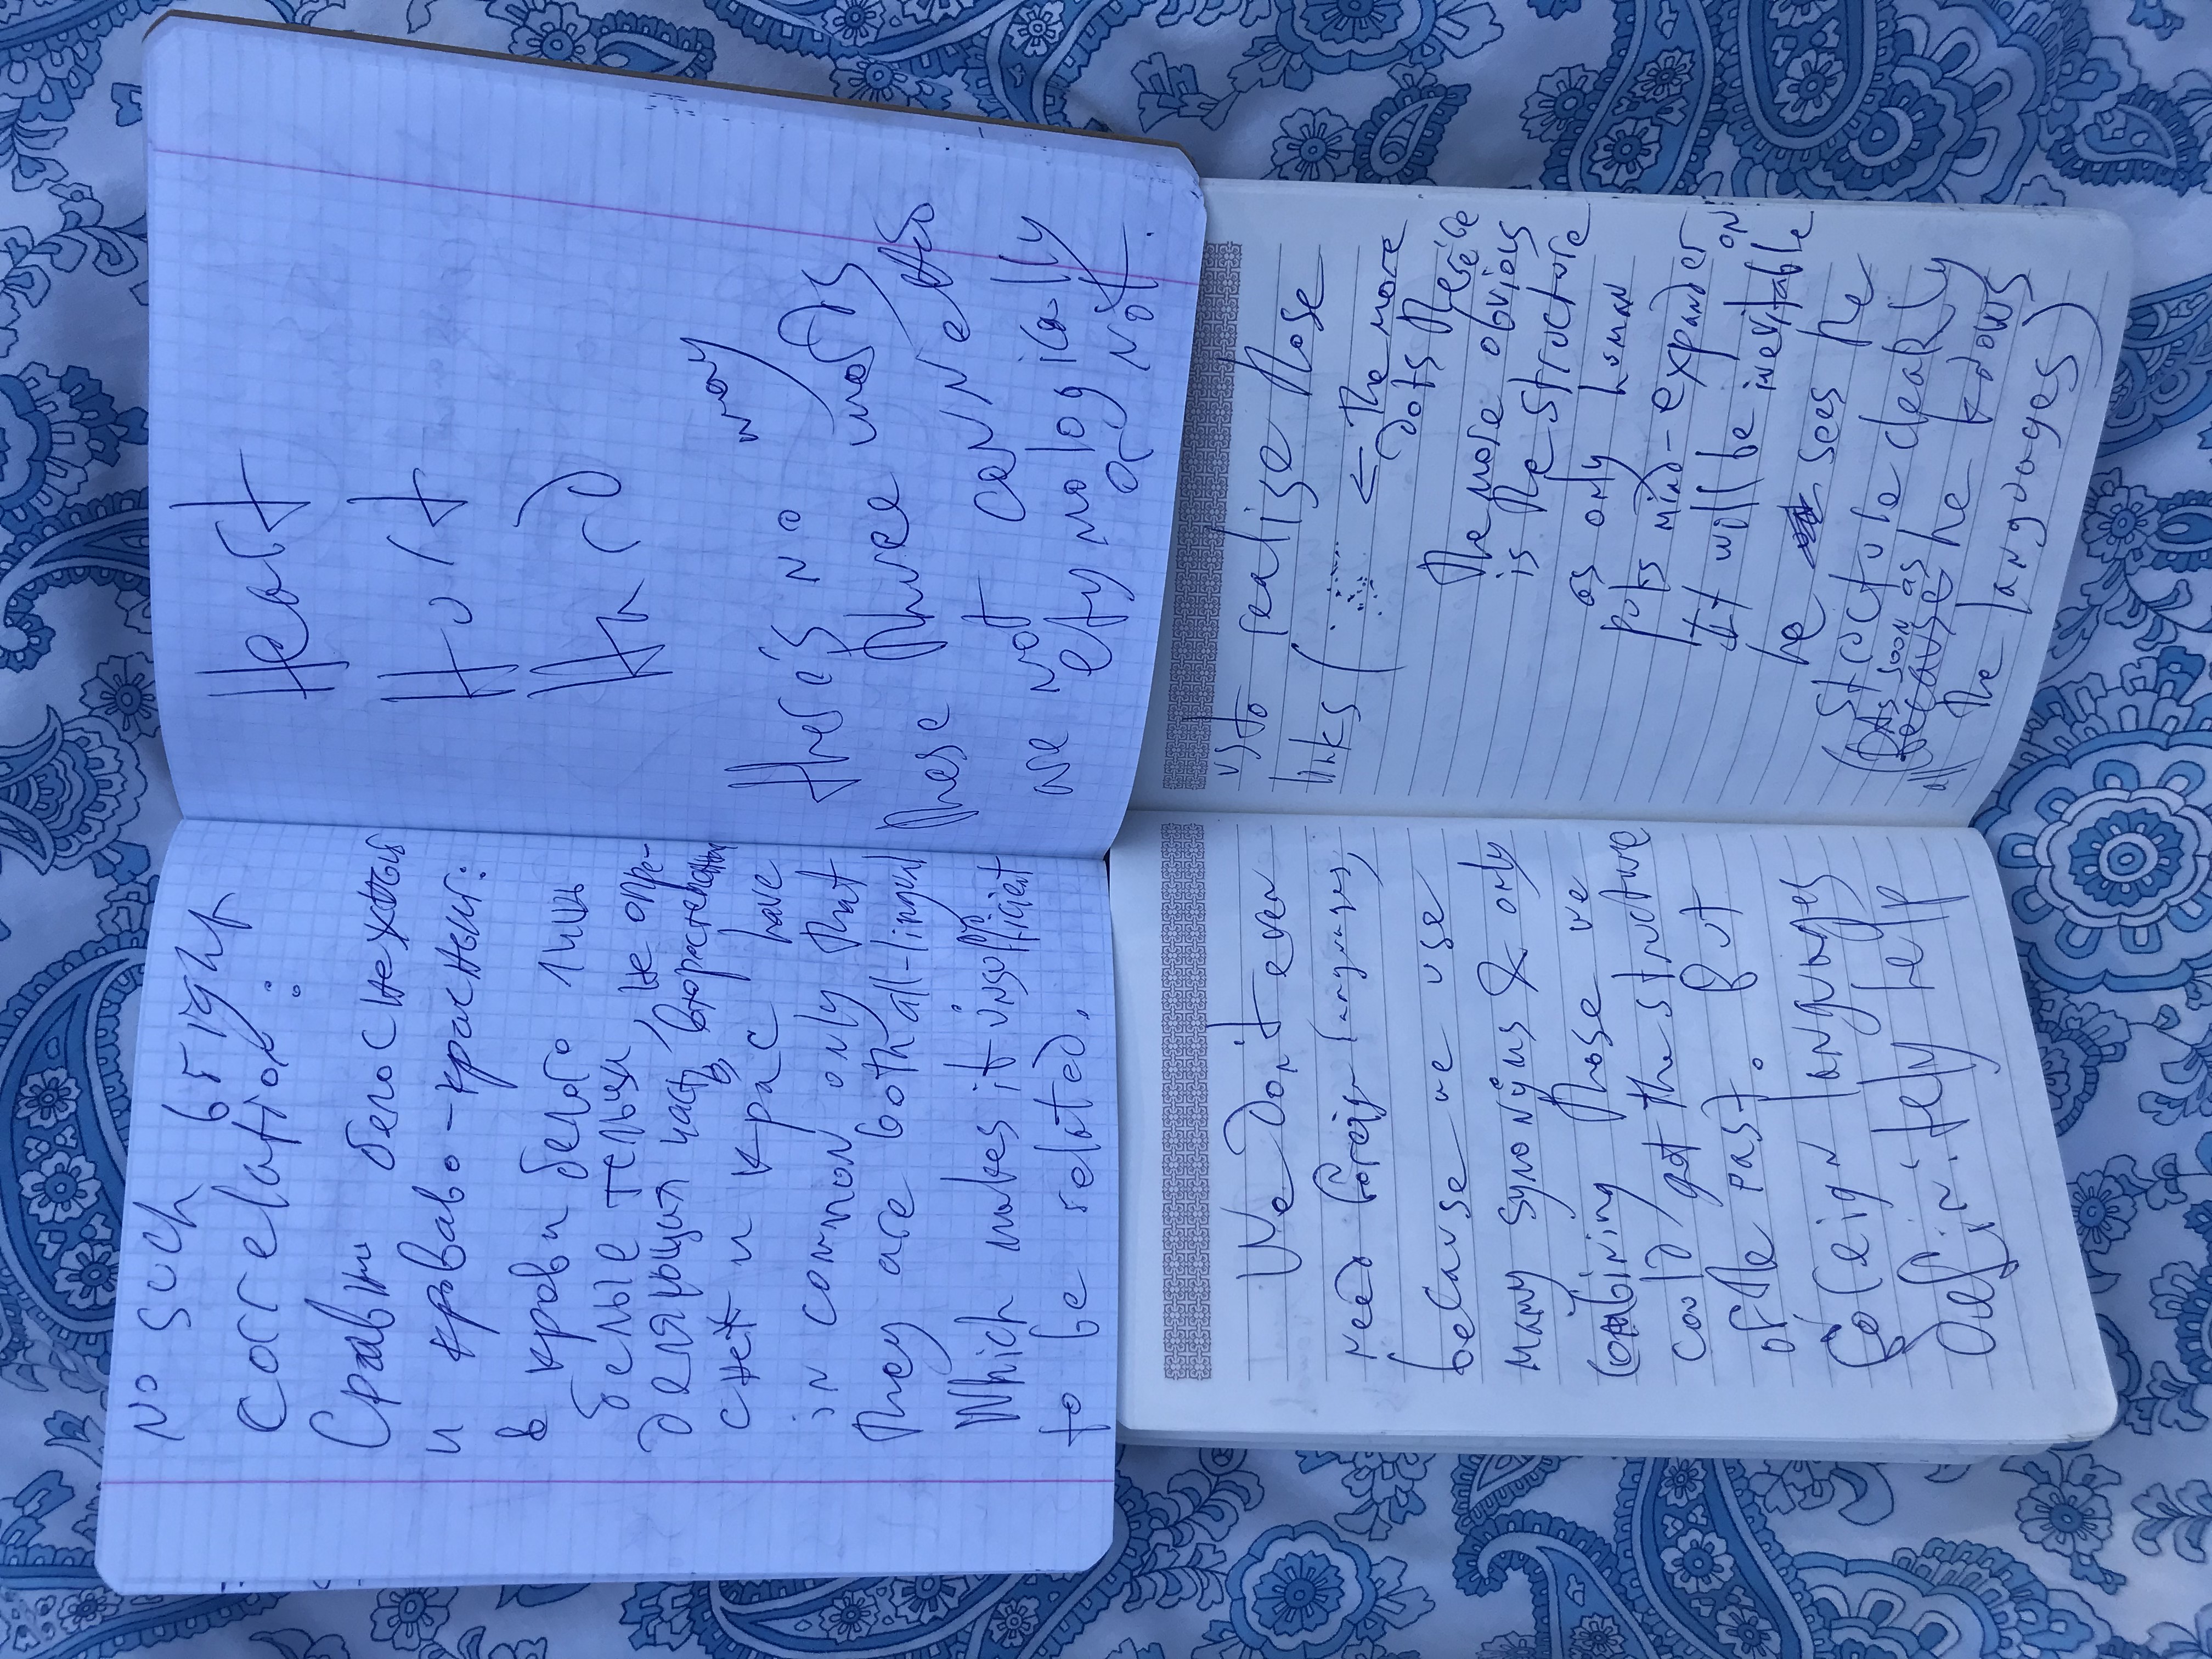 No such
bright
correlation:
Сравни белоснежный
и кроваво-красный:
в крови белого лишь
белые тельца, не опре-
деляющая часть, второстепенная
снеж и крас have
in common only that
they are both all-lingual
Which makes it insufficient
to be related.
Heart
Hurt
Hard
there's no way
these three words
are not connected
etymologically
or not.
We don't even
need foreign languages,
because we use
many synonyms & only
combining those we
could get the structure
of the past. But
foreign languages
definitely help
us to realize those
links (
← The more
dots there're
the more obvious
is the structure
as only human
puts mind-expander
on
It will be inevitable
he sees the
structure clearly
(As soon as
because he knows
all the languages)